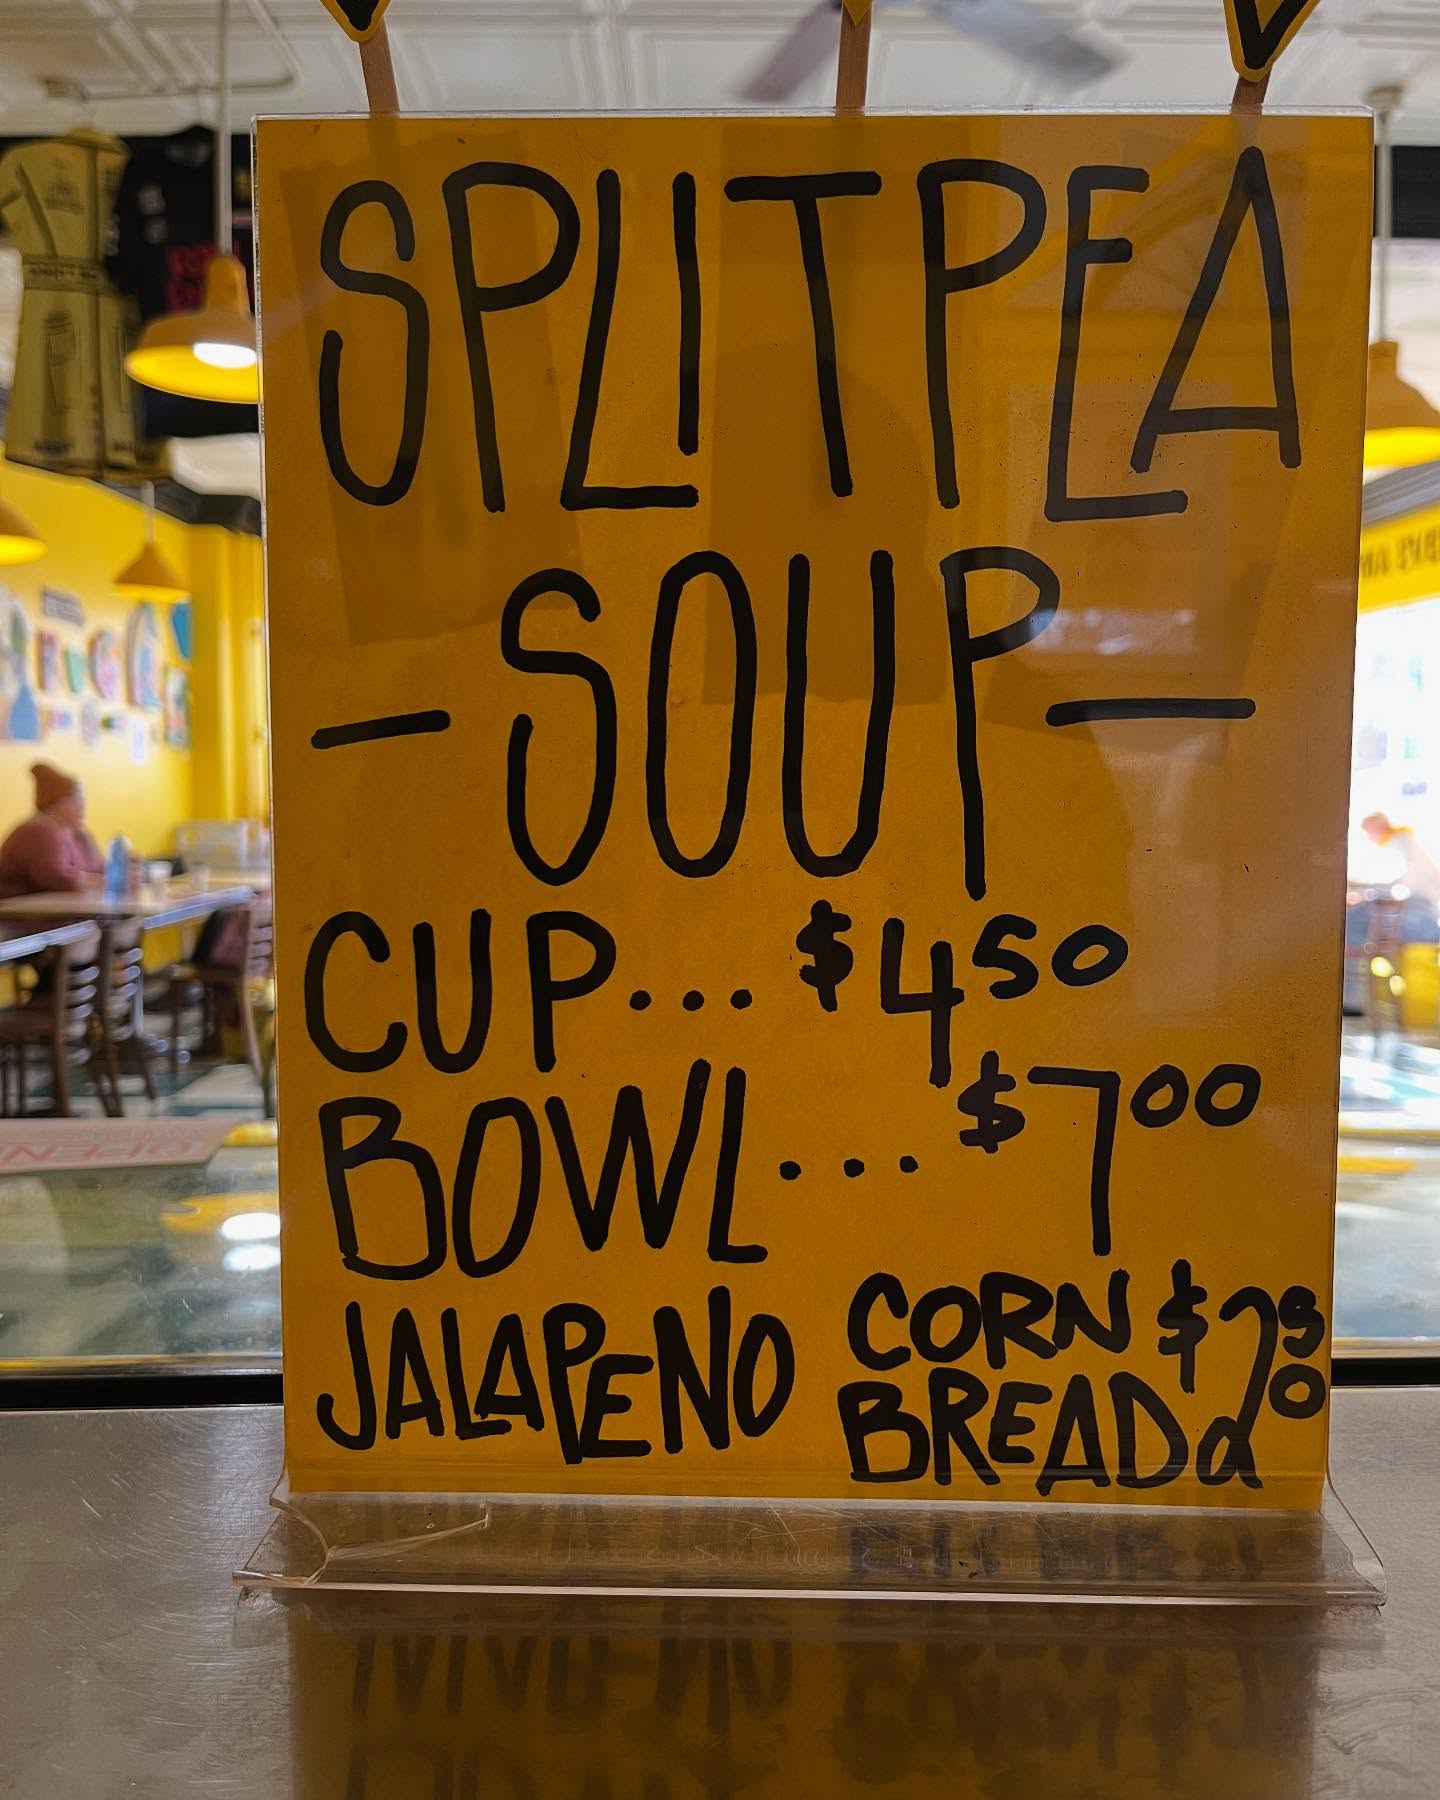 SPLIT PEA
— SOUP —
CUP... $4.50
BOWL... $7.00
JALAPENO CORN BREAD $2.50
OPEN